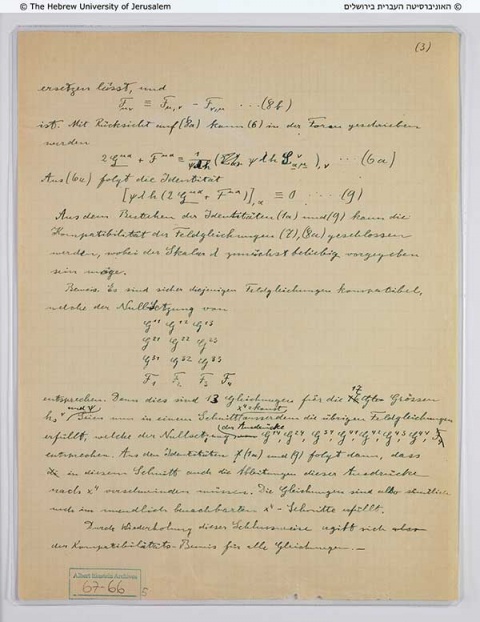 © The Hebrew University of Jerusalem
© האוניברסיטה העברית בירושלים
(3)
ersetzen lässt, und
F_μν ≡ F_μ,ν − F_ν,μ ··· (8b)
ist. Mit Rücksicht auf (8a) kann (6) in der Form geschrieben
werden
2 G^μα + F^μα ≡ 1/ψh ( ψ h )_,ν ··· (6a)
Aus (6a) folgt die Identität
[ψ h (2 G^μα + F^μα)]_,α ≡ 0 ··· (9)
Aus dem Bestehen der Identitäten (1a) und (9) kann die
Kompatibilität der Feldgleichungen (7), (8a) geschlossen
werden, wobei der Skalar zunächst beliebig vorgegeben
sein möge.
Beweis. Es sind sicher diejenigen Feldgleichungen kompatibel,
welche der Nullsetzung von
G^11 G^12 G^13
G^21 G^22 G^23
G^31 G^32 G^33
F_1 F_2 F_3 F_4
entsprechen. Denn dies sind 13 Gleichungen für die 17 Grössen
h_s^ν und ψ. Seien nun in einem Schnitt x^4 = konst ausserdem die übrigen Feldgleichungen
erfüllt, welche der Nullsetzung der Ausdrücke G^14, G^24, G^34, G^41, G^42, G^43, G^44
entsprechen. Aus den Identitäten (1a) und (9) folgt dann, dass
in diesem Schnitt auch die Ableitungen dieser Ausdrücke
nach x^4 verschwinden müssen. Die Gleichungen sind also
auch im unendlich benachbarten x^4-Schnitte erfüllt.
Durch Wiederholung dieser Schlussweise ergibt sich also
der Kompatibilitäts-Beweis für alle Gleichungen. —
Albert Einstein Archives
67-66
5